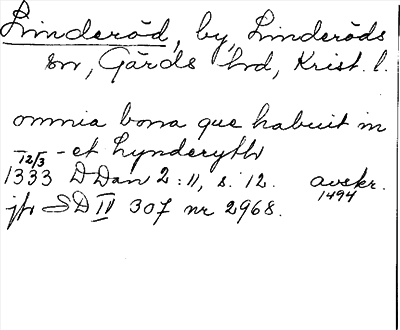 Linderöd, by, Linderöds
sn, Gärds hd, Krist. l.
omnia bona que habuit in
- et Lynderyth
12/3
1333 DDan 2:11, s. 12. avskr.
1494
jfr SD IV 307 nr 2968.